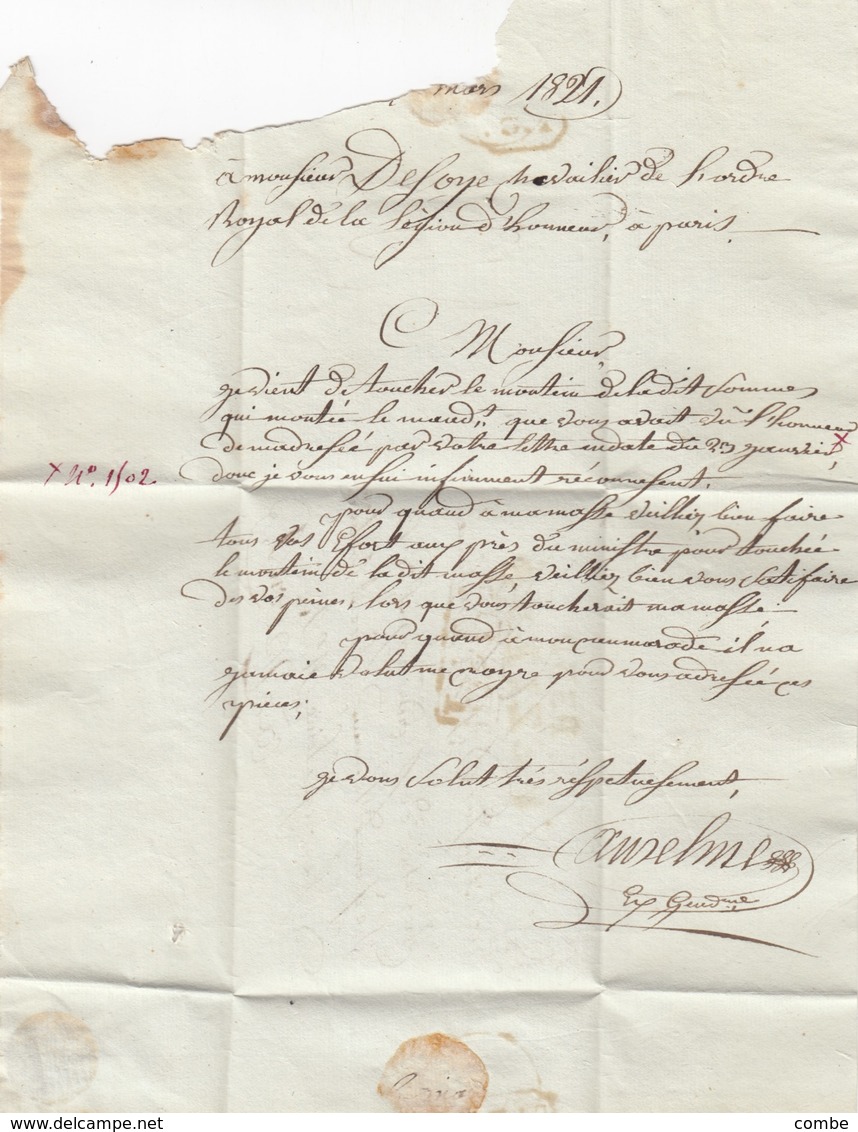 mars 1821.
à monsieur Desoye chevailier de Lordre
Royal de la Légion d'honneur, à paris.
Monsieur
ge vient de toucher le montein de la dit sommes
qui montée le mand.t que vous avait eu l'honneur
de madresée par votre lettre en date du 23 janvier,
donc je vous ensui infiniment réconnesent.
x N.o 1502
pour quand à ma masse veilliez bien faire
tous vos Efort aux près du ministre pour touchée
le montein de la dit masse, veilliez bien vous satifaire
des vos peines, lors que vous toucherait ma masse.
pour quand à mon camarade il na
gamaie volut me croyre pour vous adresée ces
pièces;
ge vous salut très réspetuesement,
Anselme
Ex Gend.me
delcampe.net
combe